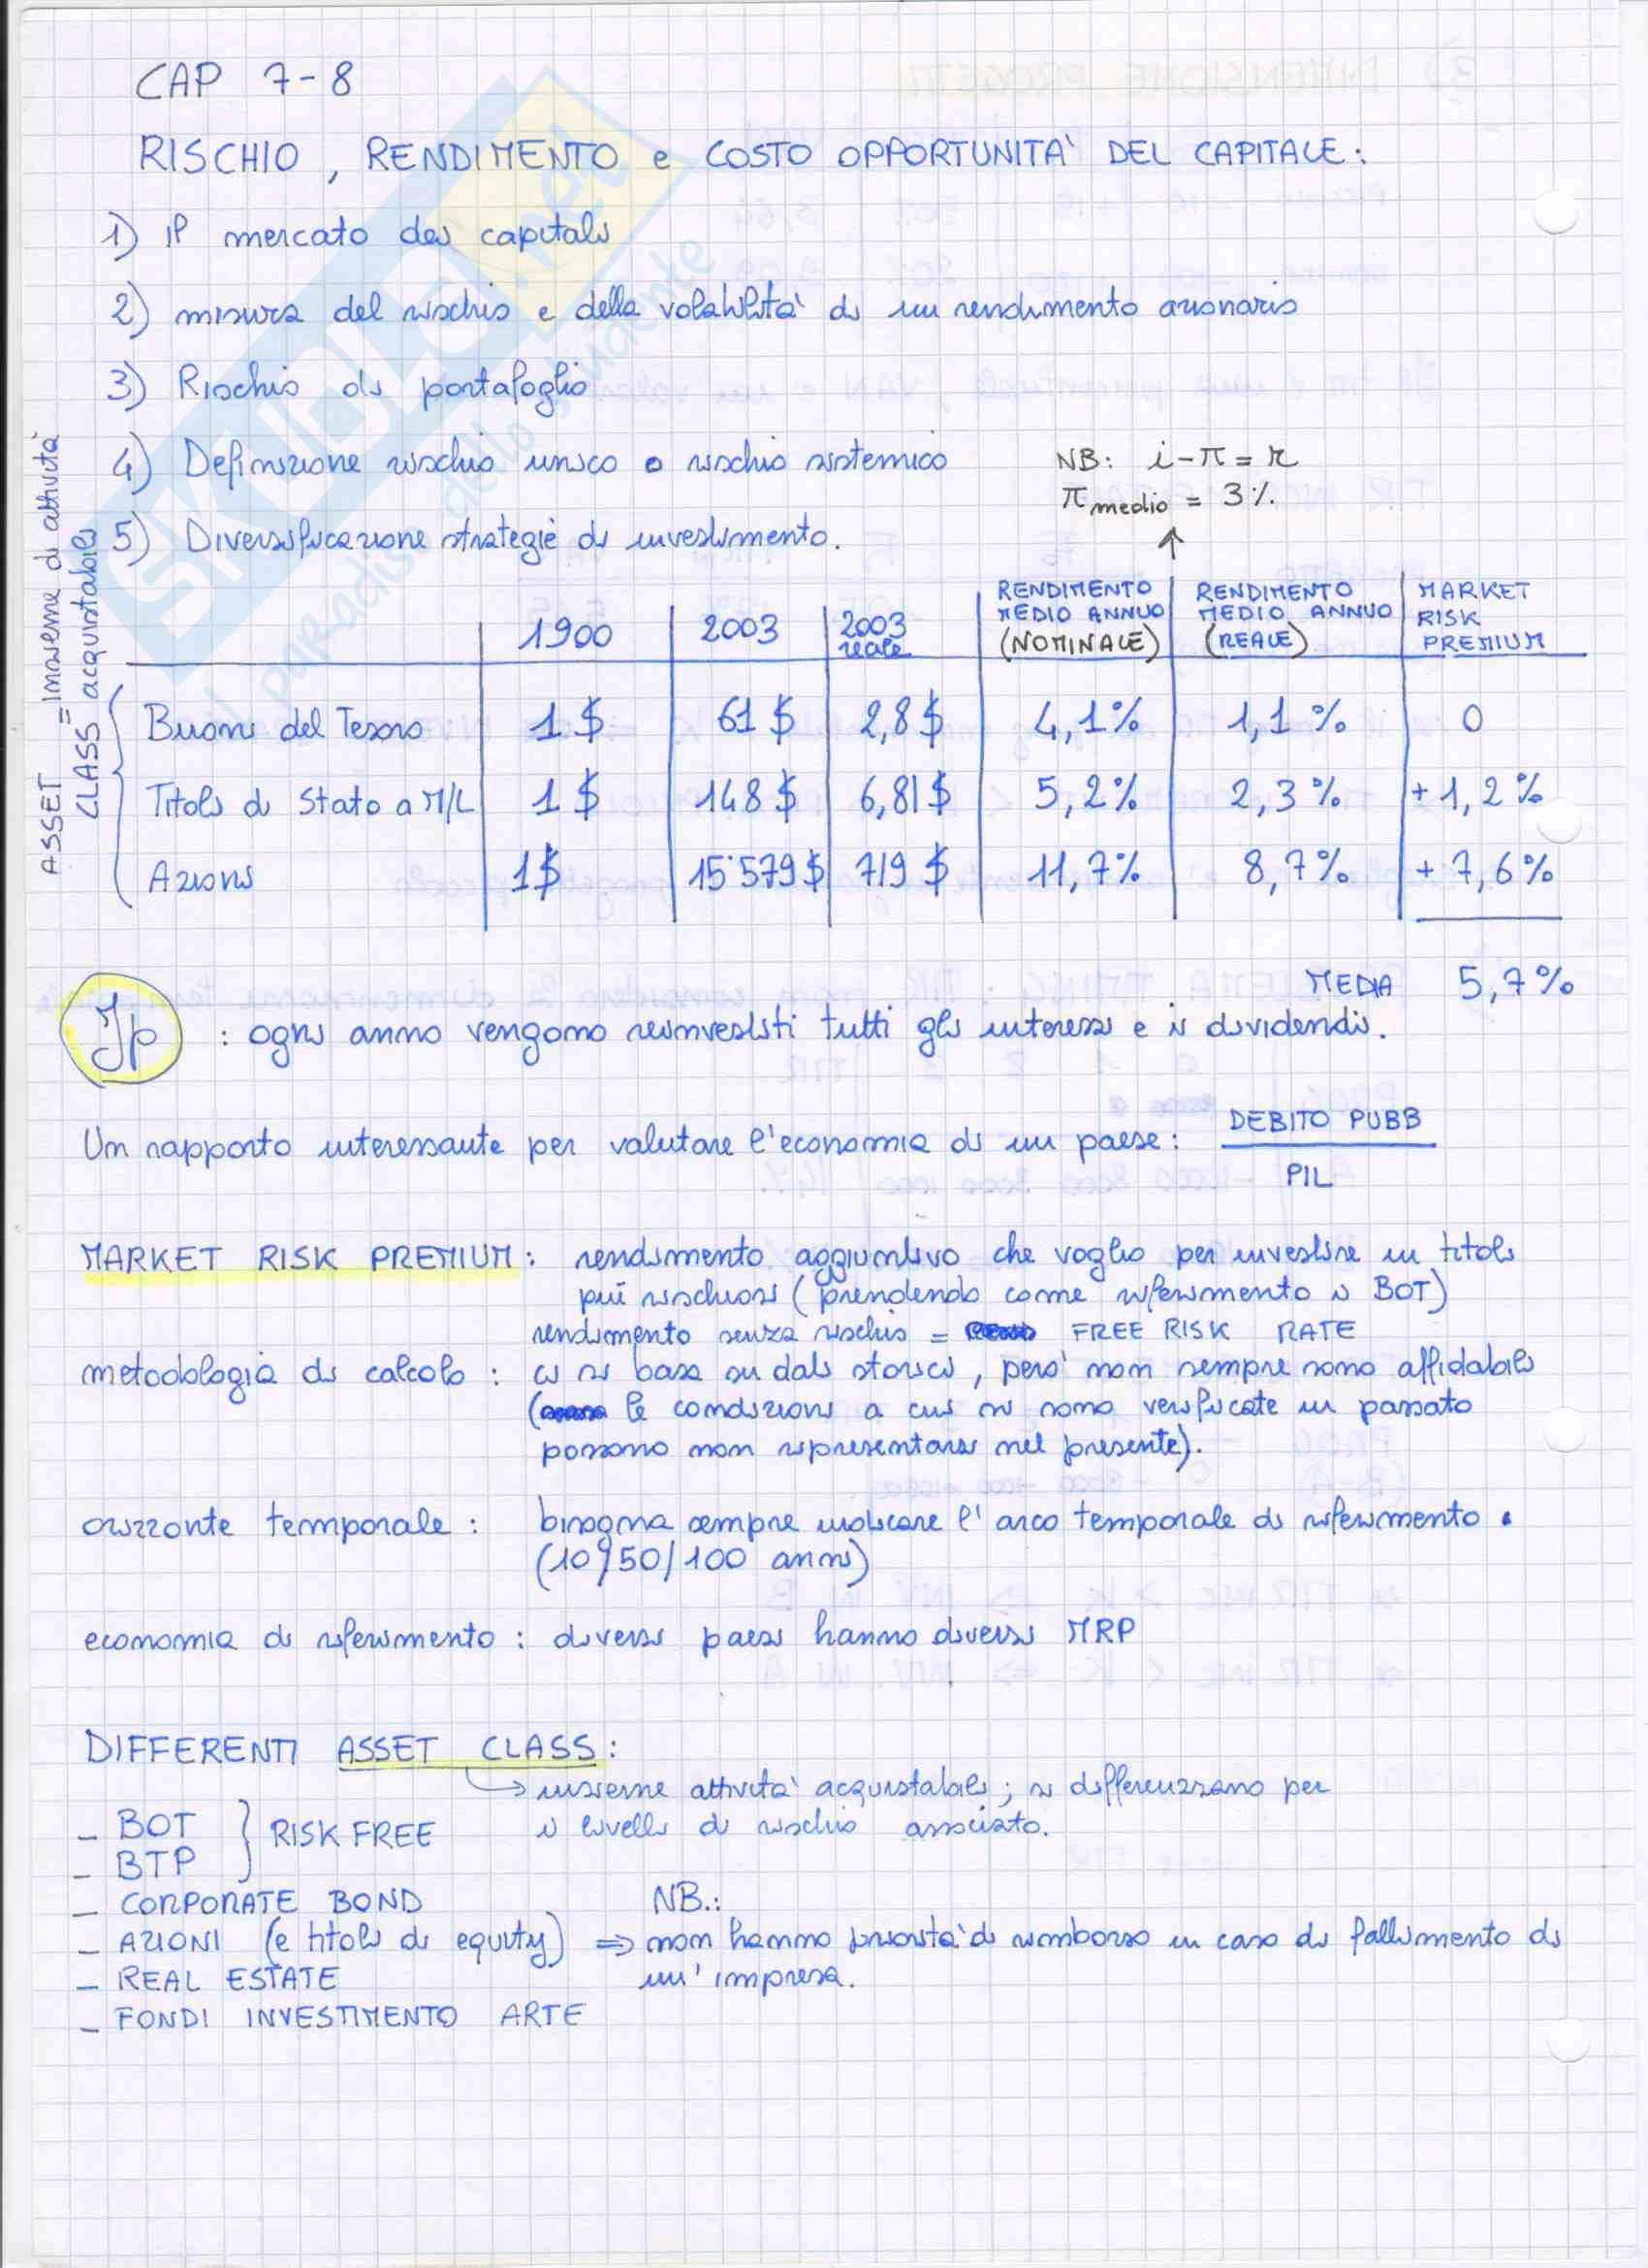 CAP 7-8
RISCHIO, RENDIMENTO e COSTO OPPORTUNITA' DEL CAPITALE:
1) Il mercato dei capitali
2) misura del rischio e della volatilità di un rendimento azionario
3) Rischio di portafoglio
4) Definizione rischio unico e rischio sistemico
5) Diversificazione strategie di investimento.
NB: i - π = r
π medio = 3%
ASSET CLASS = insieme di attività acquistabili
1900 2003 2003 reale RENDIMENTO MEDIO ANNUO (NOMINALE) RENDIMENTO MEDIO ANNUO (REALE) MARKET RISK PREMIUM
Buoni del Tesoro 1$ 61$ 2,8$ 4,1% 1,1% 0
Titoli di Stato a M/L 1$ 148$ 6,81$ 5,2% 2,3% +1,2%
Azioni 1$ 15'579$ 719$ 11,7% 8,7% +7,6%
MEDIA 5,7%
Ip : ogni anno vengono reinvestiti tutti gli interessi e i dividendi.
Un rapporto interessante per valutare l'economia di un paese: DEBITO PUBB
PIL
MARKET RISK PREMIUM: rendimento aggiuntivo che voglio per investire in titoli
più rischiosi (prendendo come riferimento i BOT)
rendimento senza rischio = FREE RISK RATE
metodologia di calcolo: ci si basa su dati storici, però non sempre sono affidabili
(le condizioni a cui si sono verificate in passato
possono non ripresentarsi nel presente).
orizzonte temporale: bisogna sempre indicare l'arco temporale di riferimento.
(10/50/100 anni)
economia di riferimento: diversi paesi hanno diversi MRP
DIFFERENTI ASSET CLASS:
insieme attività acquistabili; si differenziano per
i livelli di rischio associato.
- BOT
- BTP
RISK FREE
- CORPORATE BOND
- AZIONI (e titoli di equity) ⇒ NB.: non hanno priorità di rimborso in caso di fallimento di
un'impresa.
- REAL ESTATE
- FONDI INVESTIMENTO ARTE
SKUOLA.net
il paradiso dello studente